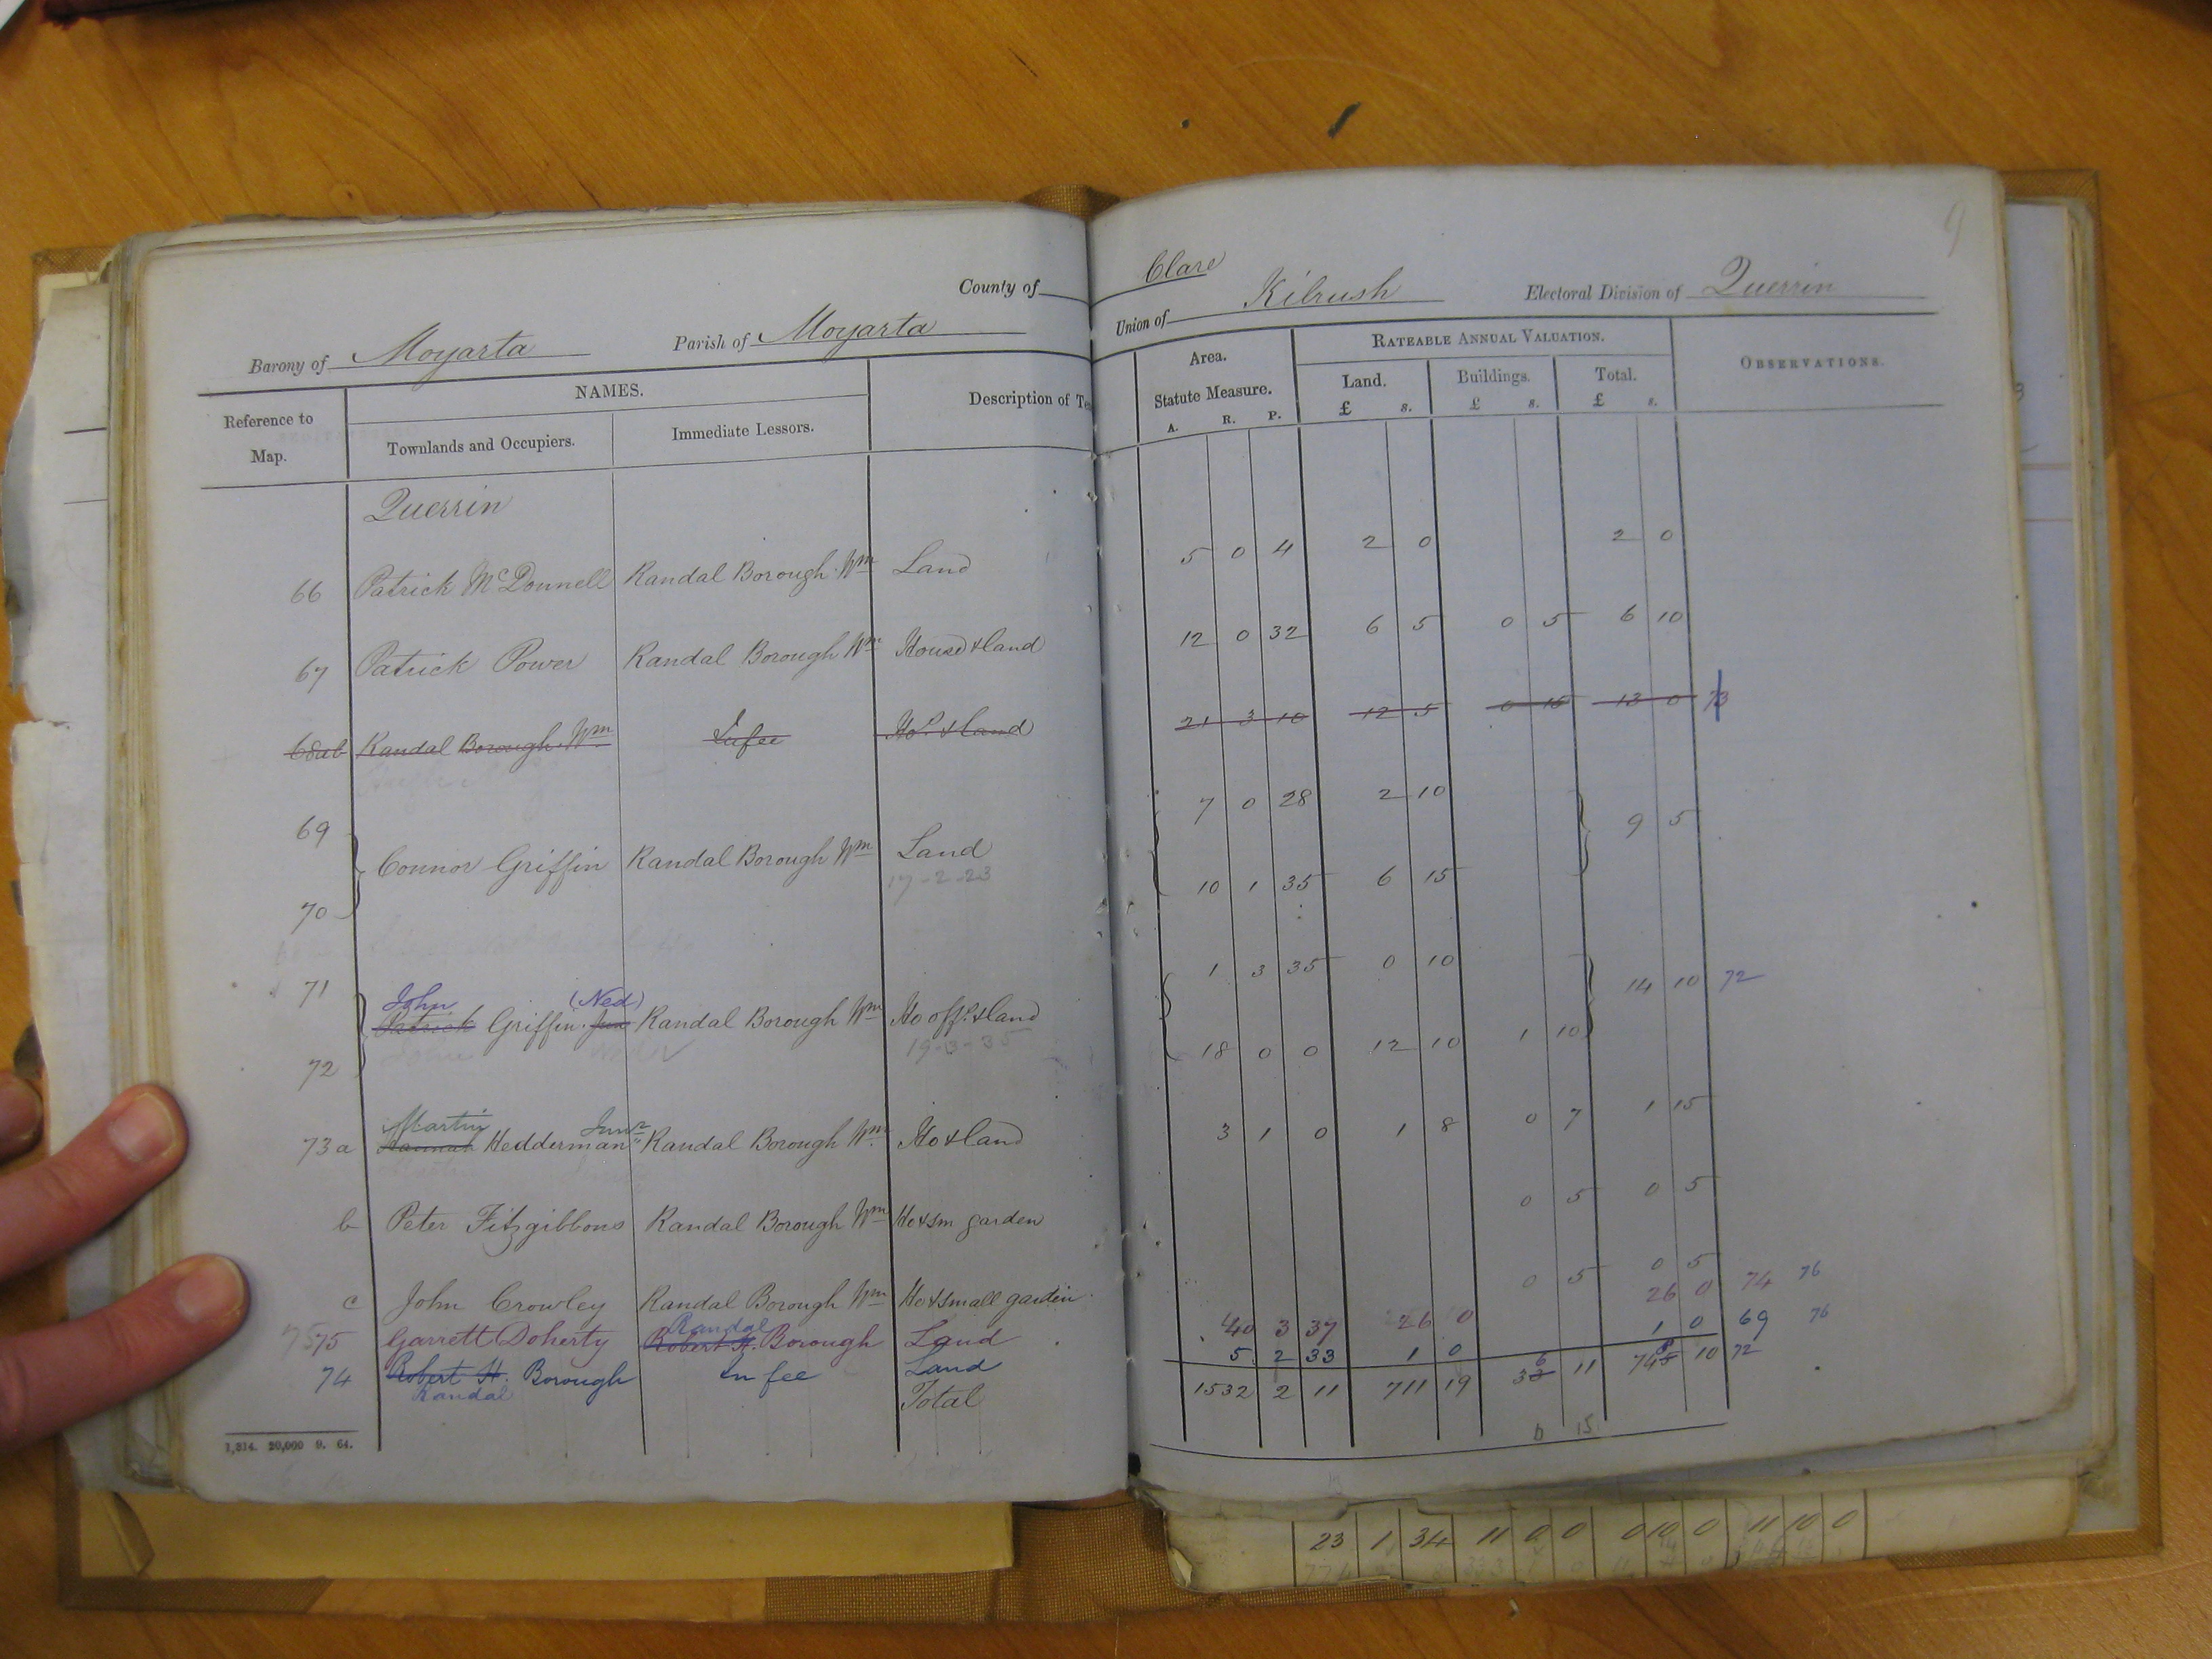 9
County of Clare
Barony of Moyarta Parish of Moyarta Union of Kilrush Electoral Division of Querrin
Reference to Map. NAMES. Description of Te Area. Statute Measure. RATEABLE ANNUAL VALUATION. OBSERVATIONS.
Townlands and Occupiers. Immediate Lessors. A. R. P. Land. £ s. Buildings. £ s. Total. £ s.
Querrin
66 Patrick McDonnell Randal Borough Wm Land 5 0 4 2 0 2 0
67 Patrick Power Randal Borough Wm House & land 12 0 32 6 5 0 5 6 10
68ab Randal Borough Wm In fee Ho. & land 21 3 10 12 5 0 15 13 0 73
69 7 0 28 2 10 9 5
Connor Griffin Randal Borough Wm Land
17-2-23
70 10 1 35 6 15
71 1 3 35 0 10 14 10 72
John (Ned)
Patrick Griffin Junr Randal Borough Wm Ho off. & land
19-3-35
72 18 0 0 12 10 1 10
Martin Junr
73 a Hannah Hedderman Randal Borough Wm Ho & land 3 1 0 1 8 0 7 1 15
b Peter Fitzgibbons Randal Borough Wm Ho & sm garden 0 5 0 5
c John Crowley Randal Borough Wm Ho & small garden 0 5 0 5
Randal
75 75 Garrett Doherty Robert H. Borough Land 40 3 37 26 0 26 0 74 76
74 Robert H. Borough In fee Land 5 2 33 1 0 1 0 69 76
Randal
Total 1532 2 11 711 19 33 6 11 745 8 10 72
15
1,314. 20,000 9. 64.
23 1 34 11 0 0 0 10 0 11 10 0